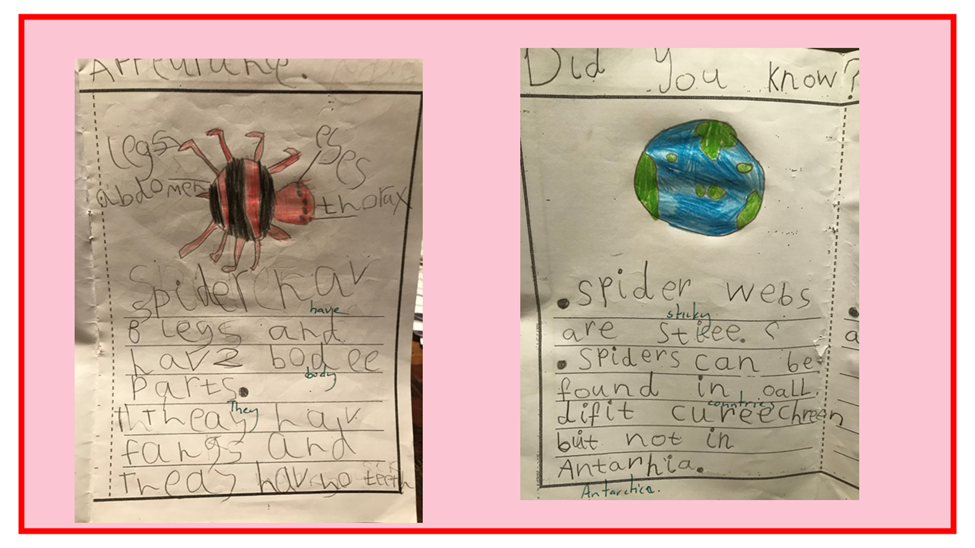 Did You know?
legs
eyes
abdomen
thorax
Spider hav
have
8 legs and
hav 2 bodee
body
parts.
They
Theay hav
fangs and
theay hav no teeth
• spider webs
sticky
are stkee.
• spiders can be
found in oall
countries
difit cureechreen
but not in
Antarhia.
Antarctica.